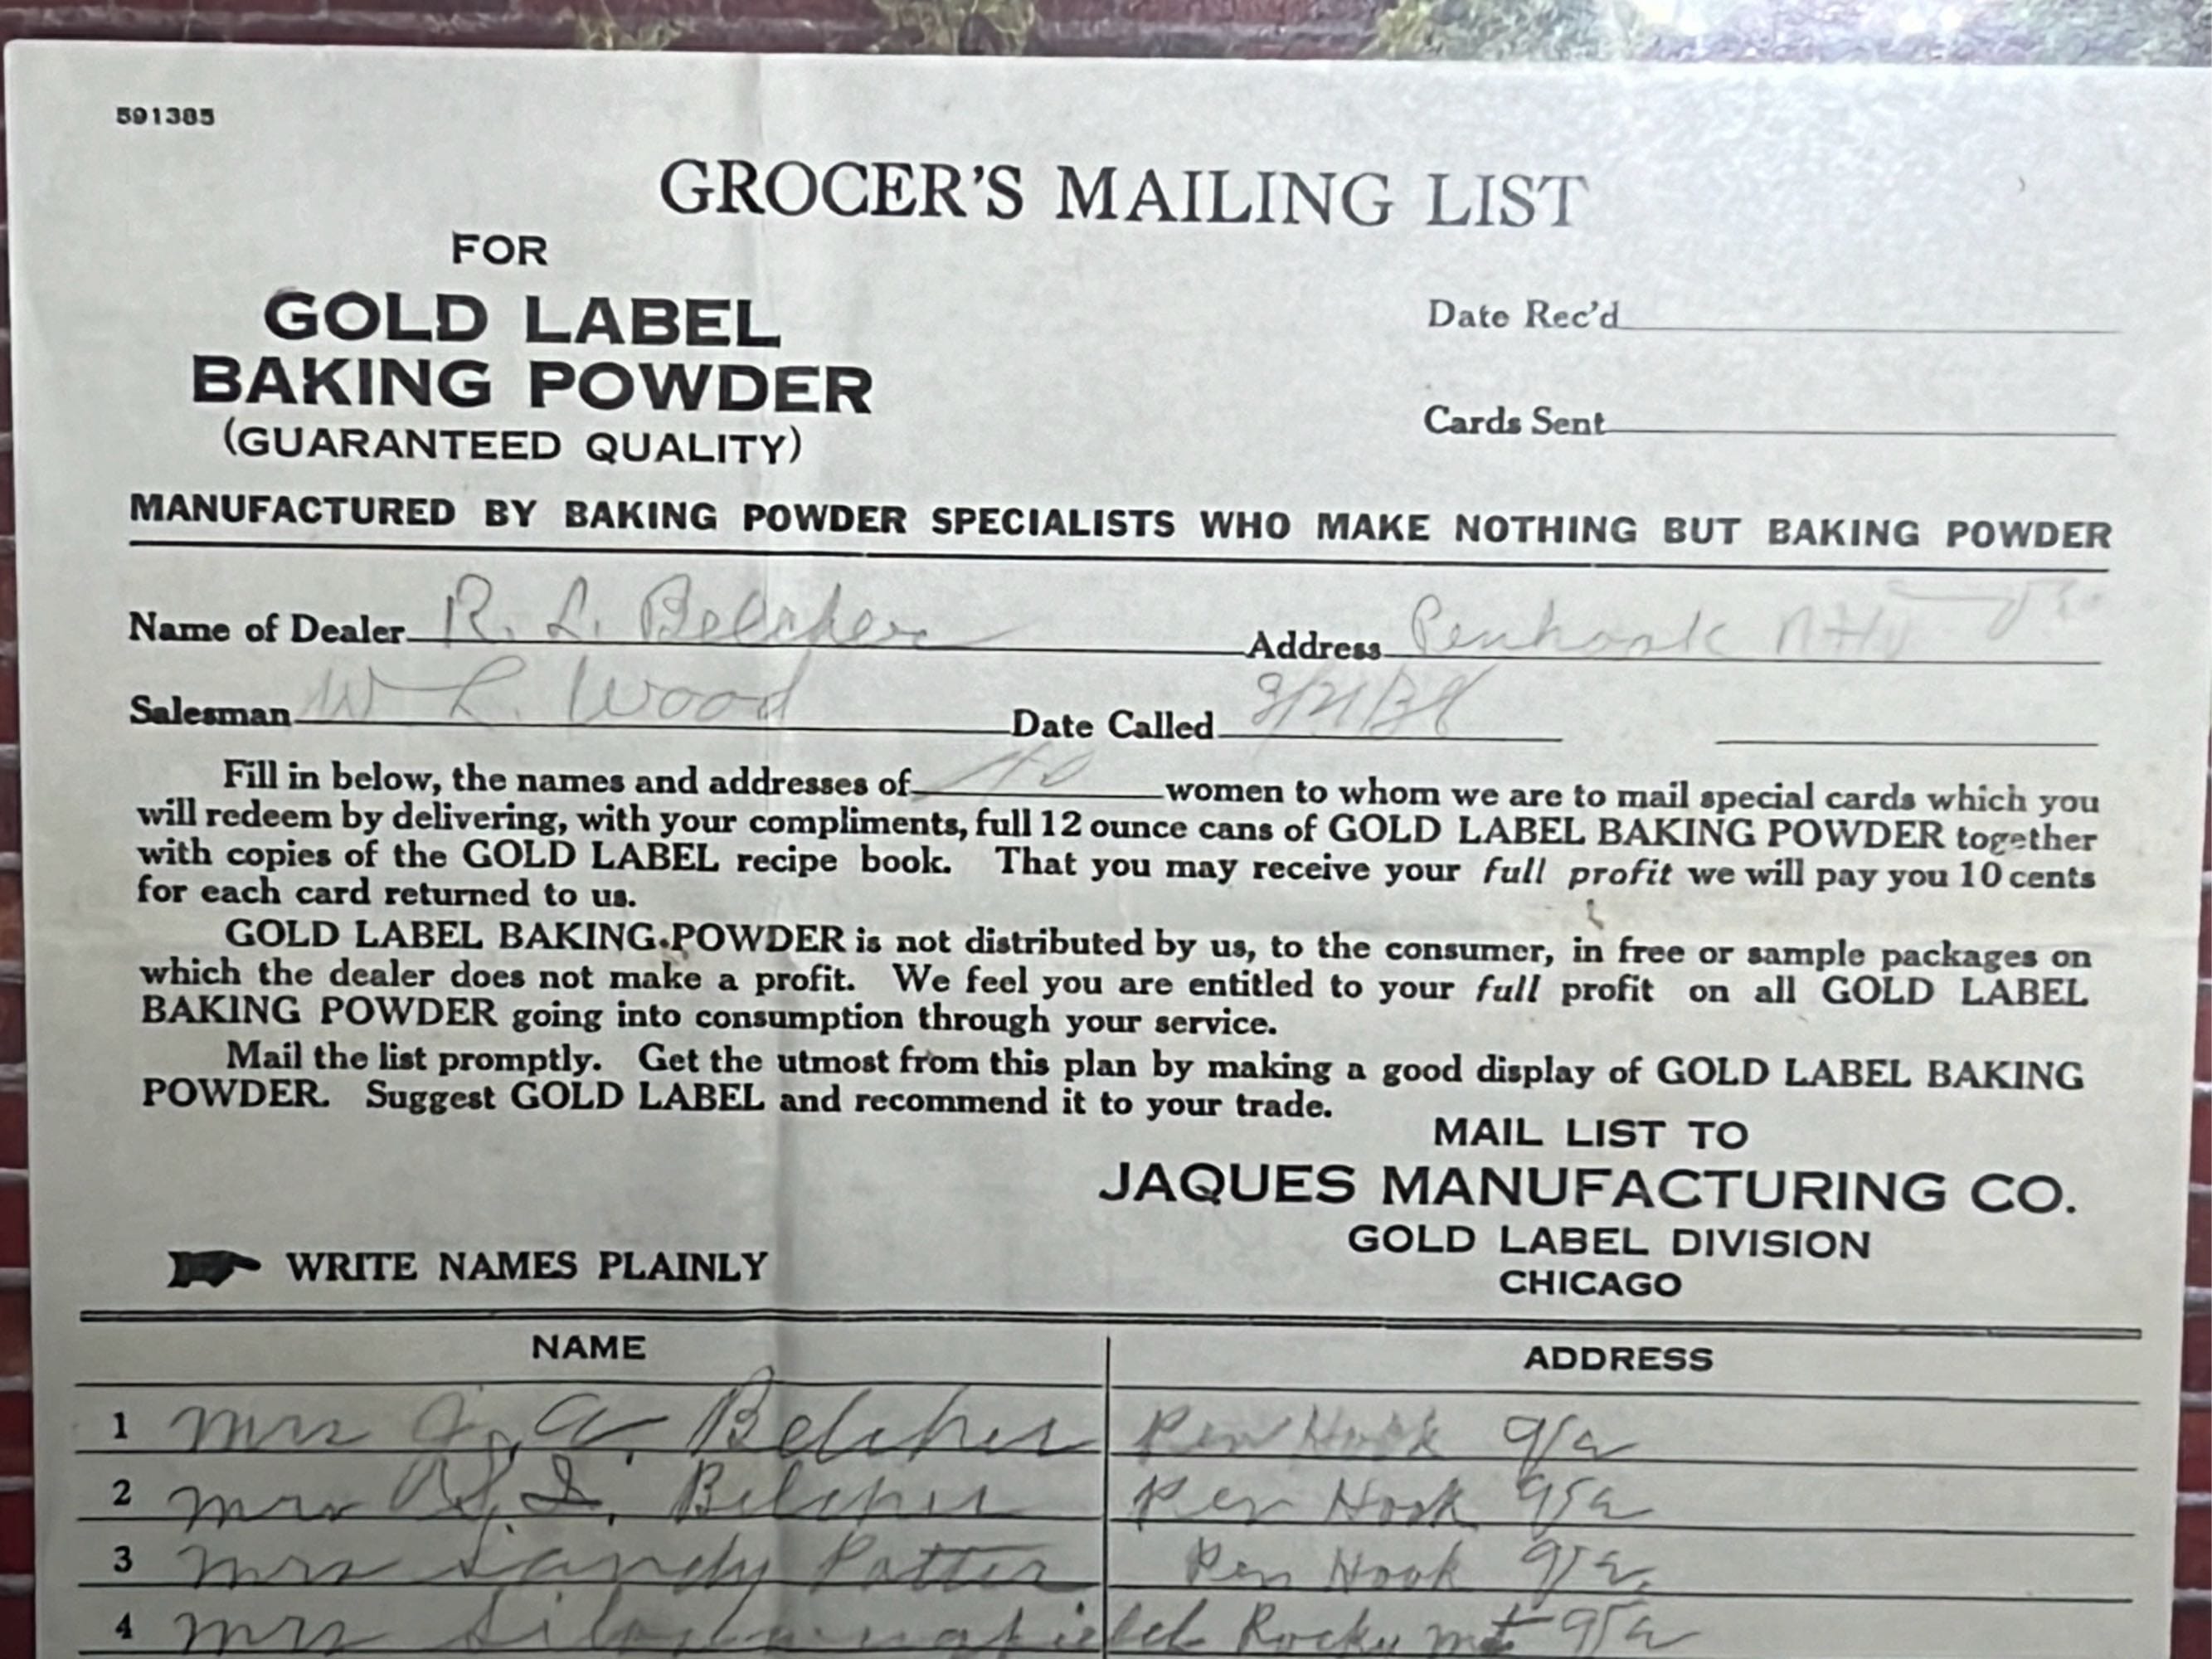 591385
GROCER'S MAILING LIST
FOR
GOLD LABEL
BAKING POWDER
(GUARANTEED QUALITY)
Date Rec'd
Cards Sent
MANUFACTURED BY BAKING POWDER SPECIALISTS WHO MAKE NOTHING BUT BAKING POWDER
Name of Dealer R. L. Belcher Address Penhook
Salesman W L. Wood Date Called
Fill in below, the names and addresses of women to whom we are to mail special cards which you
will redeem by delivering, with your compliments, full 12 ounce cans of GOLD LABEL BAKING POWDER together
with copies of the GOLD LABEL recipe book. That you may receive your full profit we will pay you 10 cents
for each card returned to us.
GOLD LABEL BAKING POWDER is not distributed by us, to the consumer, in free or sample packages on
which the dealer does not make a profit. We feel you are entitled to your full profit on all GOLD LABEL
BAKING POWDER going into consumption through your service.
Mail the list promptly. Get the utmost from this plan by making a good display of GOLD LABEL BAKING
POWDER. Suggest GOLD LABEL and recommend it to your trade.
MAIL LIST TO
JAQUES MANUFACTURING CO.
GOLD LABEL DIVISION
CHICAGO
WRITE NAMES PLAINLY
NAME ADDRESS
1 Mrs Belcher Pen Hook Va
2 Mrs Belcher Pen Hook Va
3 Mrs Sandy Potter Pen Hook Va.
4 Mrs Rocky Mt Va